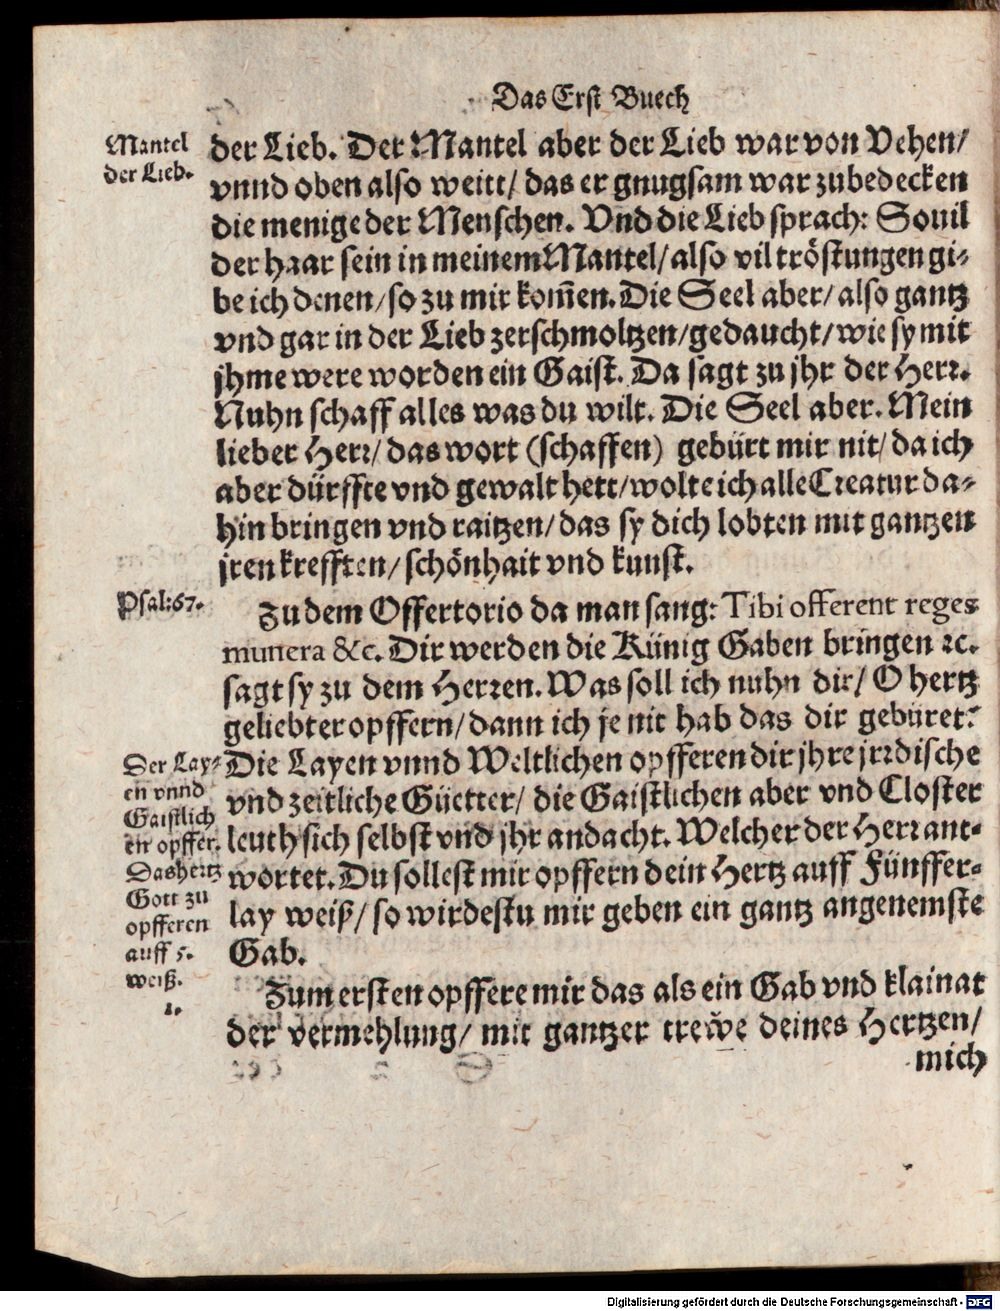 Das Erst Buech
Mantel
der Lieb.
der Lieb. Der Mantel aber der Lieb war von Vehen/
vnnd oben also weitt/ das er gnugsam war zubedecken
die menige der Menschen. Vnd die Lieb sprach: Souil
der haar sein in meinem Mantel/ also vil tröstungen gi-
be ich denen/ so zu mir kom̃en. Die Seel aber/ also gantz
vnd gar in der Lieb zerschmoltzen/ gedaucht/ wie sy mit
jhme were worden ein Gaist. Da sagt zu jhr der Herr.
Nuhn schaff alles was du wilt. Die Seel aber. Mein
lieber Herr/ das wort (schaffen) gebürt mir nit/ da ich
aber dürffte vnd gewalt hett/ wolte ich alle Creatur da-
hin bringen vnd raitzen/ das sy dich lobten mit gantzen
jren krefften/ schönhait vnd kunst.
Psal:67.
Zu dem Offertorio da man sang: Tibi offerent reges
munera &c. Dir werden die Künig Gaben bringen ꝛc.
sagt sy zu dem Herren. Was soll ich nuhn dir/ O hertz
geliebter opffern/ dann ich je nit hab das dir gebüret?
Die Layen vnnd Weltlichen opfferen dir jhre jrrdische
vnd zeitliche Güetter/ die Gaistlichen aber vnd Closter
leuth sich selbst vnd jhr andacht. Welcher der Herr ant-
wortet. Du sollest mir opffern dein Hertz auff Fünffer-
lay weiß/ so wirdestu mir geben ein gantz angenemste
Gab.
Der Lay-
en vnnd
Gaistlich
en opffer.
Das hertz
Gott zu
opfferen
auff 5.
weiß.
1.
Zum ersten opffere mir das als ein Gab vnd klainat
der vermehlung/ mit gantzer trewe deines Hertzen/
mich
Digitalisierung gefördert durch die Deutsche Forschungsgemeinschaft - DFG